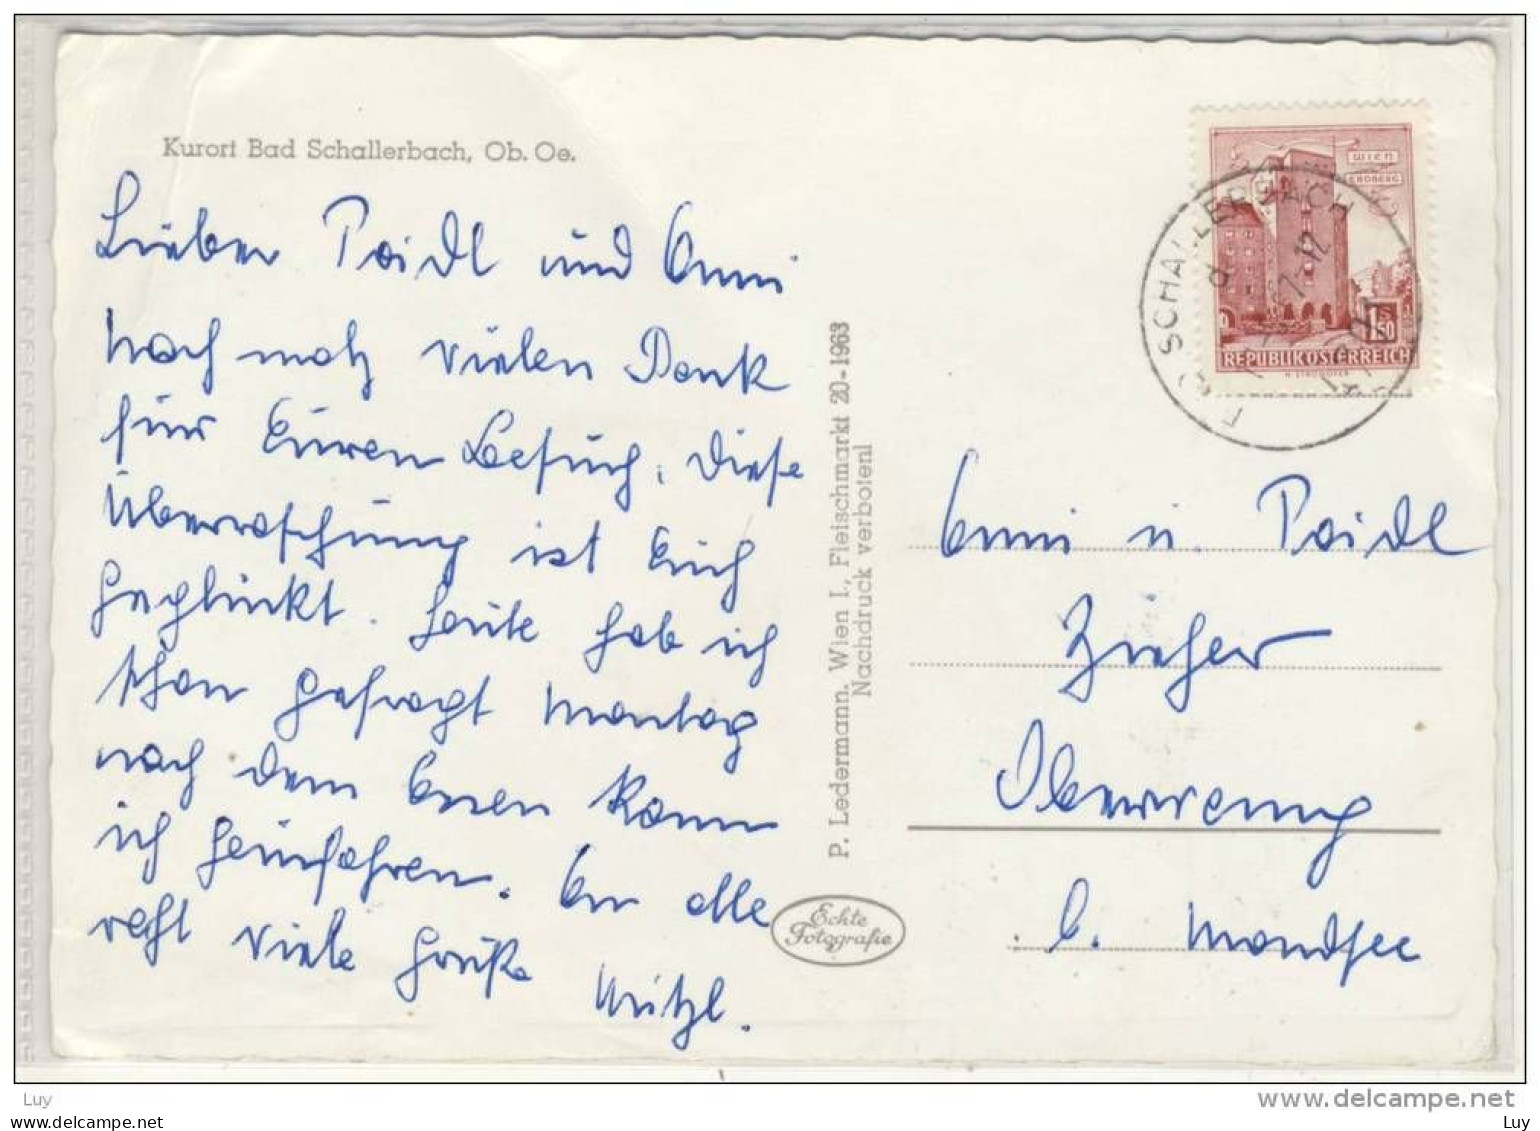 Kurort Bad Schallerbach, Ob. Oe.
Lieber Poidl und Anni
noch mals vielen Dank
für Euren Besuch, diese
Überraschung ist Euch
geglückt. Heute hab ich
schon gefragt Montag
nach dem Essen kann
ich heimfahren. An alle
recht viele Grüße
Mitzl.
P. Ledermann, Wien I., Fleischmarkt 20-1963
Nachdruck verboten!
Echte
Fotografie
WIEN
ERDBERG
1 S 50
REPUBLIK ÖSTERREICH
SCHALLERBACH
Anni u. Poidl
Zieher
Oberwang
b. Mondsee
Luy
mycollections.delcampe.net
www.delcampe.net
Luy